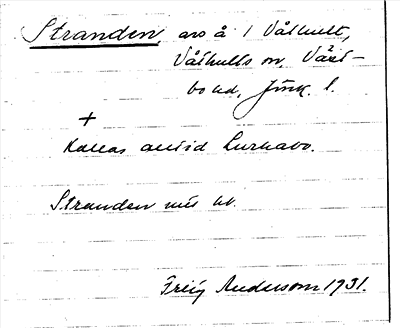 Stranden, avs å 1 Våthult,
Våthults sn, Väst-
bo hd, Jönk. l.
+
Kallas alltid Lurkabo.
Stranden
Freij Andersson 1931.